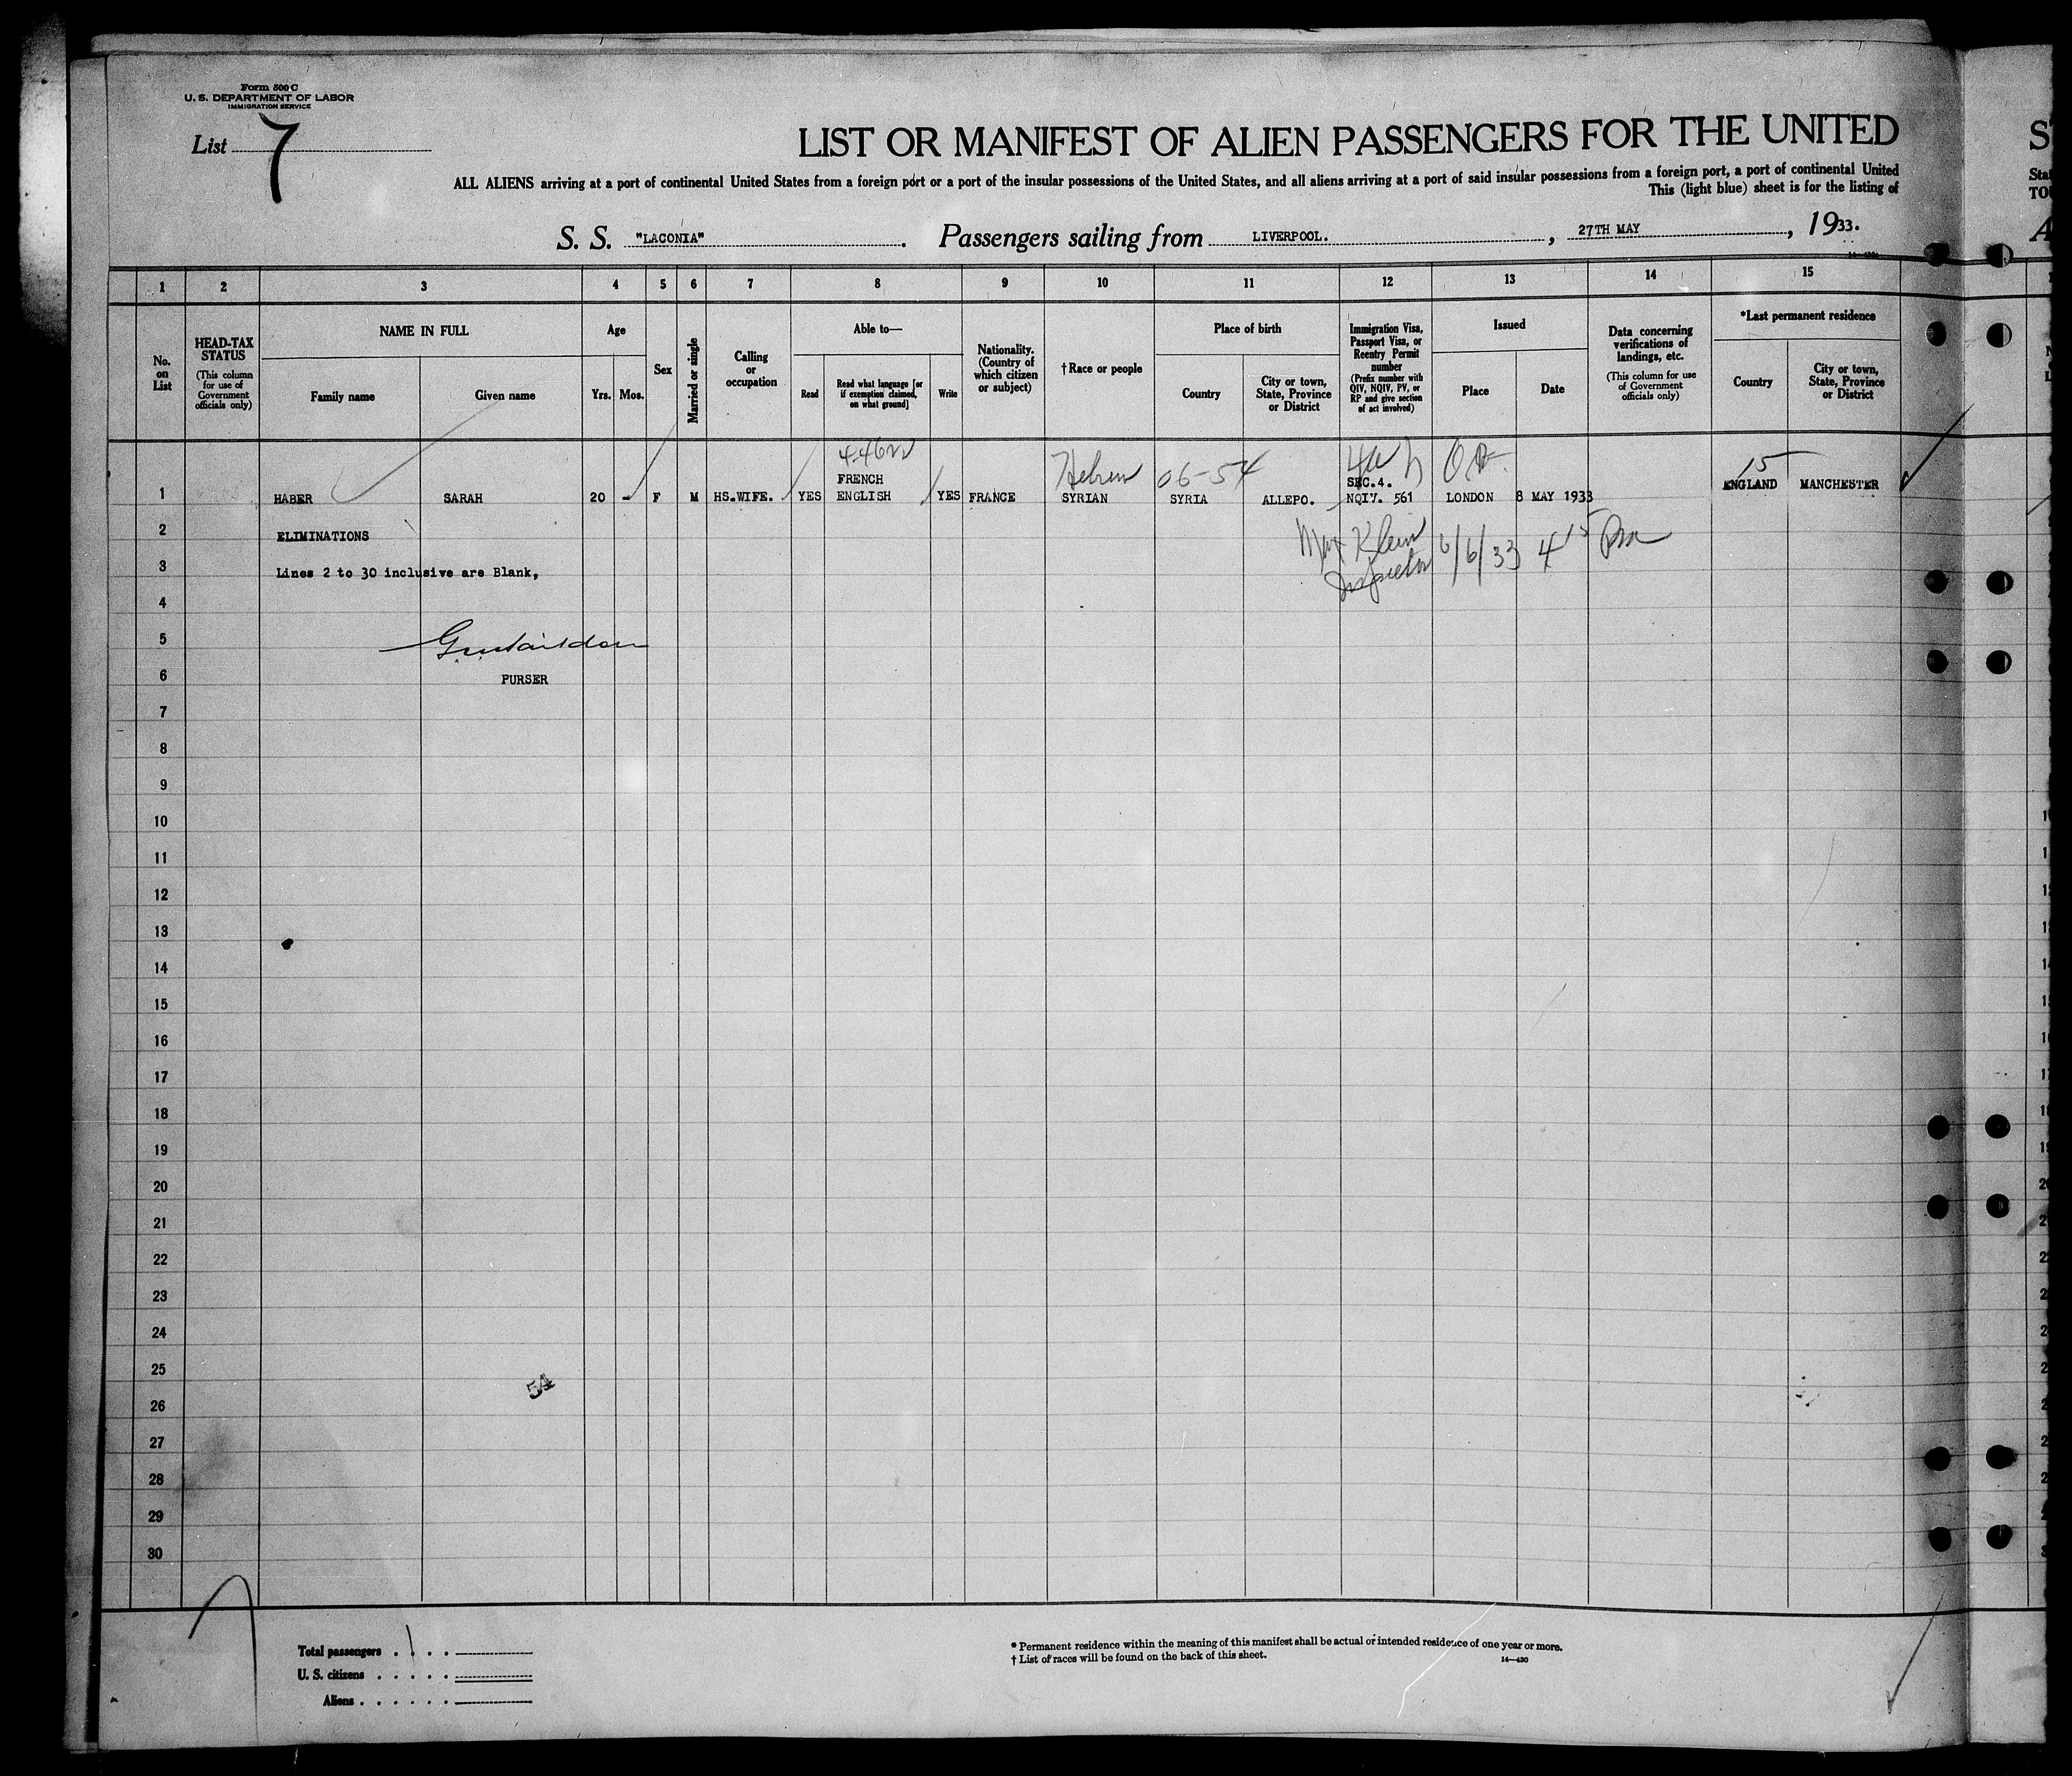 Form 500 C
U. S. DEPARTMENT OF LABOR
IMMIGRATION SERVICE
List 7
LIST OR MANIFEST OF ALIEN PASSENGERS FOR THE UNITED
ALL ALIENS arriving at a port of continental United States from a foreign port or a port of the insular possessions of the United States, and all aliens arriving at a port of said insular possessions from a foreign port, a port of continental United
This (light blue) sheet is for the listing of
S. S. "LACONIA". Passengers sailing from LIVERPOOL., 27TH MAY, 1933.
1 2 3 4 5 6 7 8 9 10 11 12 13 14 15
No. on List
HEAD-TAX STATUS
(This column for use of Government officials only)
NAME IN FULL
Family name
Given name
Age
Yrs. Mos.
Sex
Married or single
Calling or occupation
Able to—
Read
Read what language [or if exemption claimed, on what ground]
Write
Nationality. (Country of which citizen or subject)
†Race or people
Place of birth
Country
City or town, State, Province or District
Immigration Visa, Passport Visa, or Reentry Permit number
(Prefix number with QIV, NQIV, PV, or RP and give section of act involved)
Issued
Place
Date
Data concerning verifications of landings, etc.
(This column for use of Government officials only)
*Last permanent residence
Country
City or town, State, Province or District
Hebrew 06-54 15
FRENCH SEC.4.
1 HABER SARAH 20 - F M HS.WIFE. YES ENGLISH YES FRANCE SYRIAN SYRIA ALLEPO. NQIV. 561 LONDON 8 MAY 1933 ENGLAND MANCHESTER
2 ELIMINATIONS Max Klein
3 Lines 2 to 30 inclusive are Blank, Inspector 6/6/33 4 15 Pm
4
5
6 PURSER
7
8
9
10
11
12
13
14
15
16
17
18
19
20
21
22
23
24
25
54
26
27
28
29
30
Total passengers 1
U. S. citizens
Aliens
* Permanent residence within the meaning of this manifest shall be actual or intended residence of one year or more.
† List of races will be found on the back of this sheet.
14—430